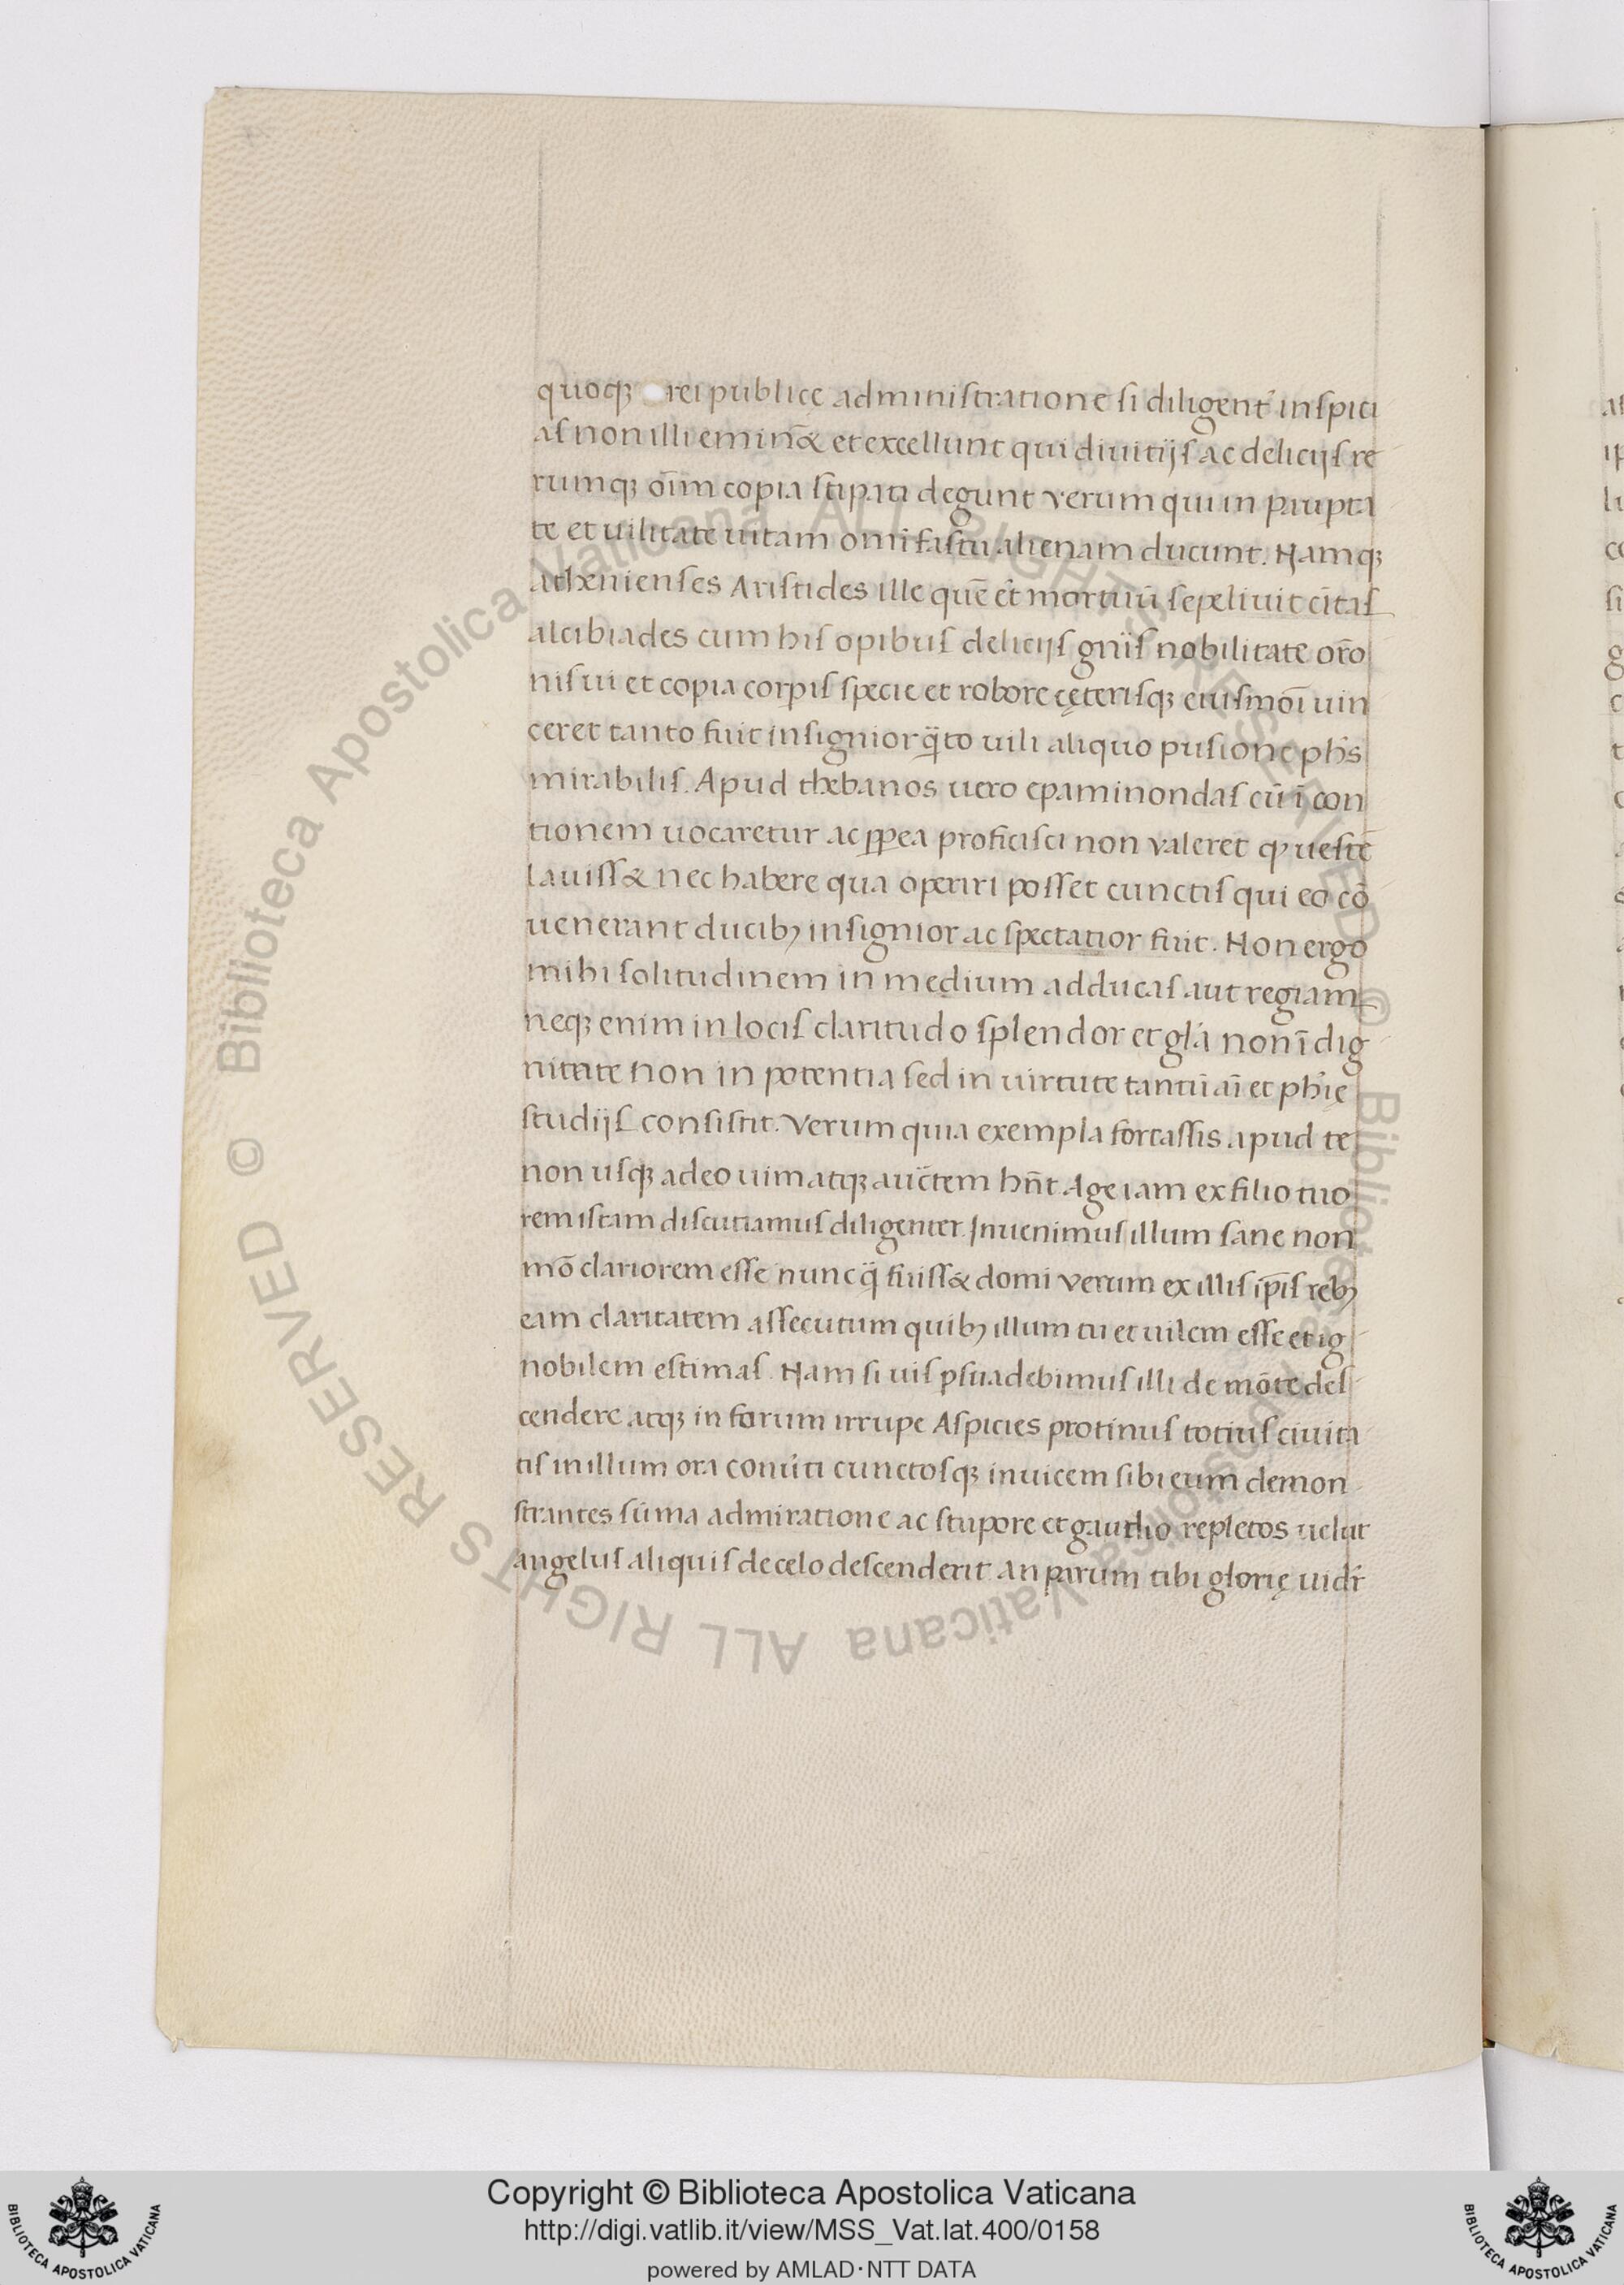 quoqꝫ rei publicę administratione si diligent᷑ inspici
as non illi eminē& et excellunt qui diuitijs ac delicijs re
rumqꝫ oīm copia stipati degunt verum qui in paupta
te et uilitate uitam omī fastu alienam ducunt. Namqꝫ
athenienses Aristides ille quē et mortuū sepeliuit cītas
alcibiades cum his opibus delicijs gn̄is nobilitate or̄o
nis ui et copia corpis specie et robore cęterisqꝫ eiusmōi uin
ceret tanto fuit insignior q̄to uili aliquo pusione ph̄s
mirabilis. Apud thebanos uero epaminondas cū ī con
tionem uocaretur ac ꝓpea proficisci non valeret ꝙ uestē
lauiss& nec habere qua operiri posset cunctis qui eo cō
uenerant ducibꝫ insignior ac spectatior fuit. Non ergo
mihi solitudinem in medium adducas aut regiam
neqꝫ enim in locis claritudo splendor et gl̄a non ī dig
nitate non in potentia sed in uirtute tantū aī et ph̄ię
studijs consistit. Verum quia exempla fortassis apud te
non usqꝫ adeo uim atqꝫ auc̄tem hn̄t Age iam ex filio tuo
rem istam discutiamus diligenter. Inuenimus illum sane non
mō clariorem esse nunc q̄ fuiss& domi verum ex illis ip̄is rebꝫ
eam claritatem assecutum quibꝫ illum tu et uilem esse et ig
nobilem estimas. Nam si uis ꝑsuadebimus illi de mōte des
cendere atqꝫ in forum irrupe Aspicies protinus totius ciuita
tis in illum ora conu̓ti cunctosqꝫ inuicem sibi eum demon
strantes sūma admiratione ac stupore et gaudio repletos uelut
angelus aliquis de celo descenderit an parum tibi glorię uidr̄
Copyright © Biblioteca Apostolica Vaticana
http://digi.vatlib.it/view/MSS_Vat.lat.400/0158
powered by AMLAD·NTT DATA